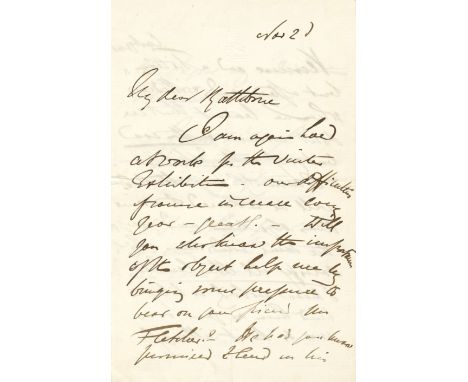 Nov 2d
My dear Rathbone
I am again hard
at work for the Winter
Exhibition - our difficulties
increase every
year - greatly. - Will
you who know the importance
of the object help me by
bringing some pressure to
bear on your friend Mr
Fletcher? He has you know
promised to lend us his